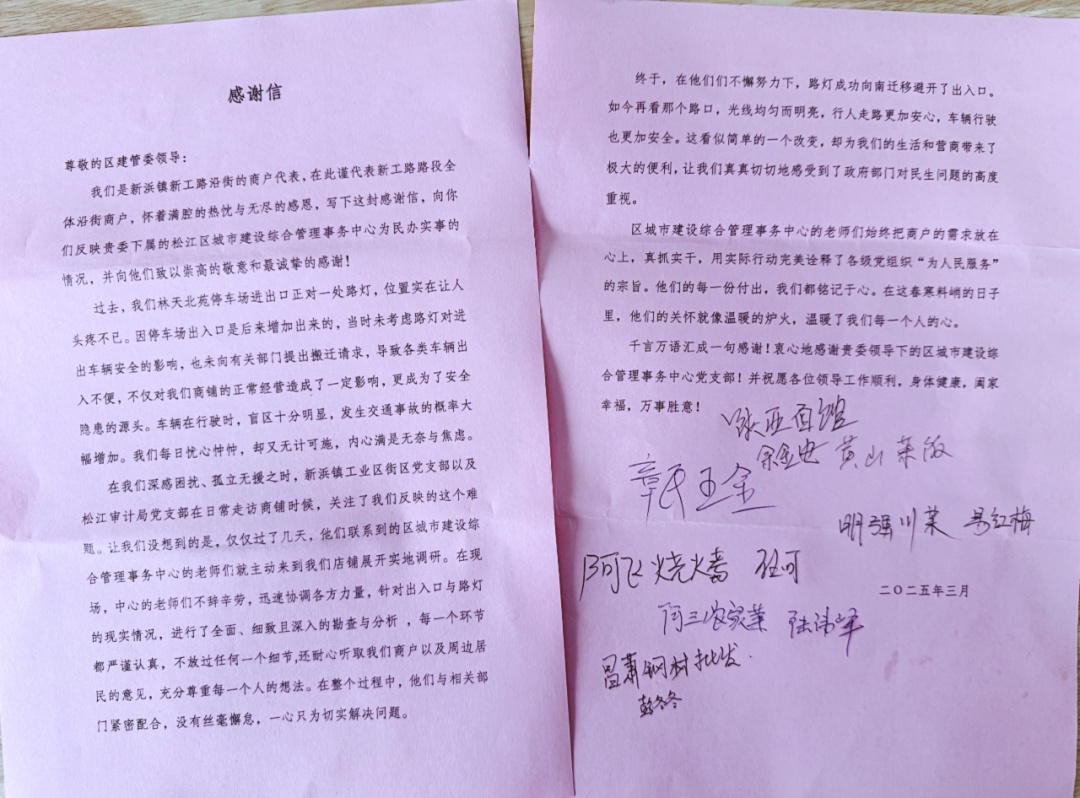 感谢信
尊敬的区建管委领导：
我们是新浜镇新工路沿街的商户代表，在此谨代表新工路路段全
体沿街商户，怀着满腔的热忱与无尽的感恩，写下这封感谢信，向你
们反映贵委下属的松江区城市建设综合管理事务中心为民办实事的
情况，并向他们致以崇高的敬意和最诚挚的感谢！
过去，我们林天北苑停车场进出口正对一处路灯，位置实在让人
头疼不已。因停车场出入口是后来增加出来的，当时未考虑路灯对进
出车辆安全的影响，也未向有关部门提出搬迁请求，导致各类车辆出
入不便，不仅对我们商铺的正常经营造成了一定影响，更成为了安全
隐患的源头。车辆在行驶时，盲区十分明显，发生交通事故的概率大
幅增加。我们每日忧心忡忡，却又无计可施，内心满是无奈与焦虑。
在我们深感困扰、孤立无援之时，新浜镇工业区街区党支部以及
松江审计局党支部在日常走访商铺时候，关注了我们反映的这个难
题。让我们没想到的是，仅仅过了几天，他们联系到的区城市建设综
合管理事务中心的老师们就主动来到我们店铺展开实地调研。在现
场，中心的老师们不辞辛劳，迅速协调各方力量，针对出入口与路灯
的现实情况，进行了全面、细致且深入的勘查与分析，每一个环节
都严谨认真，不放过任何一个细节,还耐心听取我们商户以及周边居
民的意见，充分尊重每一个人的想法。在整个过程中，他们与相关部
门紧密配合，没有丝毫懈怠，一心只为切实解决问题。
终于，在他们们不懈努力下，路灯成功向南迁移避开了出入口。
如今再看那个路口，光线均匀而明亮，行人走路更加安心，车辆行驶
也更加安全。这看似简单的一个改变，却为我们的生活和营商带来了
极大的便利，让我们真真切切地感受到了政府部门对民生问题的高度
重视。
区城市建设综合管理事务中心的老师们始终把商户的需求放在
心上，真抓实干，用实际行动完美诠释了各级党组织“为人民服务”
的宗旨。他们的每一份付出，我们都铭记于心。在这春寒料峭的日子
里，他们的关怀就像温暖的炉火，温暖了我们每一个人的心。
千言万语汇成一句感谢！衷心地感谢贵委领导下的区城市建设综
合管理事务中心党支部！并祝愿各位领导工作顺利，身体健康，阖家
幸福，万事胜意！
面馆
黄山菜饭
五金
明强川菜 红梅
阿飞烧烤 任可
阿三农家菜
昌萧钢材批发
彭冬冬
二〇二五年三月